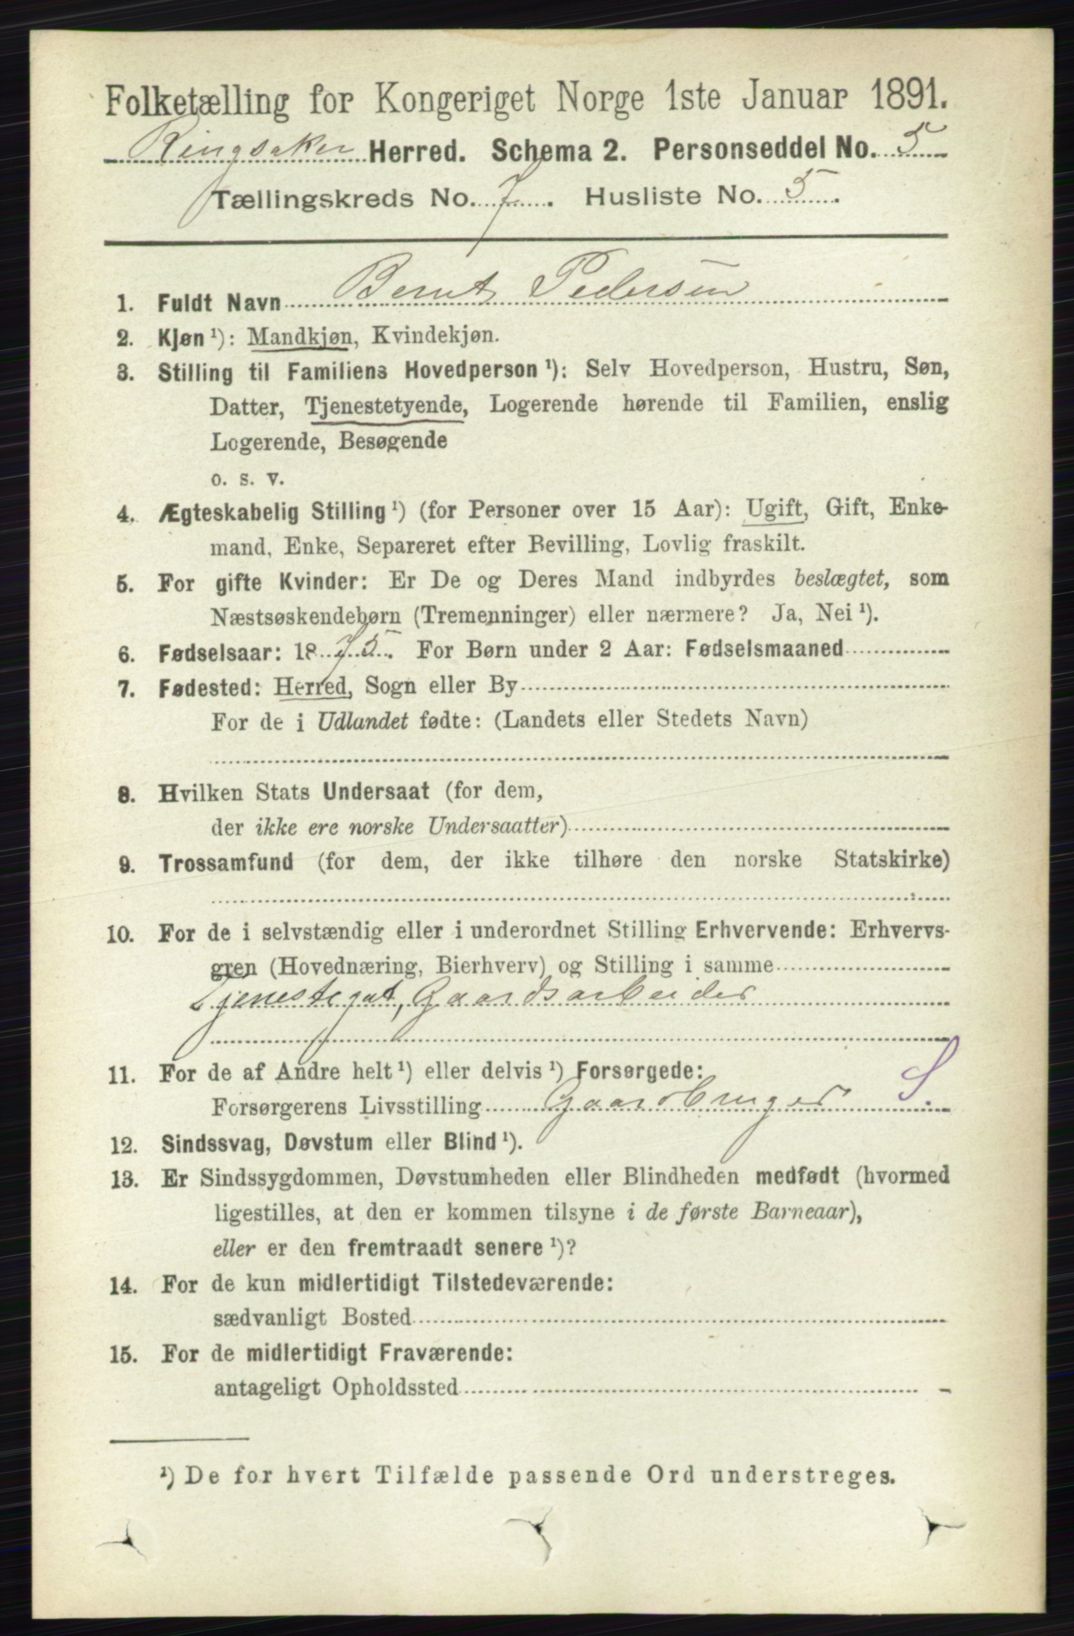 Folketælling for Kongeriget Norge 1ste Januar 1891.
Ringsaker Herred. Schema 2. Personseddel No. 5
Tællingskreds No. 7. Husliste No. 5.
1. Fuldt Navn Bernt Pedersen
2. Kjøn ¹): Mandkjøn, Kvindekjøn.
3. Stilling til Familiens Hovedperson ¹): Selv Hovedperson, Hustru, Søn,
Datter, Tjenestetyende, Logerende hørende til Familien, enslig
Logerende, Besøgende
o. s. v.
4. Ægteskabelig Stilling ¹) (for Personer over 15 Aar): Ugift, Gift, Enke-
mand, Enke, Separeret efter Bevilling, Lovlig fraskilt.
5. For gifte Kvinder: Er De og Deres Mand indbyrdes beslægtet, som
Næstsøskendebørn (Tremenninger) eller nærmere? Ja, Nei ¹).
6. Fødselsaar: 1875. For Børn under 2 Aar: Fødselsmaaned
7. Fødested: Herred, Sogn eller By
For de i Udlandet fødte: (Landets eller Stedets Navn)
8. Hvilken Stats Undersaat (for dem,
der ikke ere norske Undersaatter)
9. Trossamfund (for dem, der ikke tilhøre den norske Statskirke)
10. For de i selvstændig eller i underordnet Stilling Erhvervende: Erhvervs-
gren (Hovednæring, Bierhverv) og Stilling i samme
Tjenestegut, Gaardsarbeider
11. For de af Andre helt ¹) eller delvis ¹) Forsørgede:
Forsørgerens Livsstilling Gaardbruger S.
12. Sindssvag, Døvstum eller Blind ¹).
13. Er Sindssygdommen, Døvstumheden eller Blindheden medfødt (hvormed
ligestilles, at den er kommen tilsyne i de første Barneaar),
eller er den fremtraadt senere ¹)?
14. For de kun midlertidigt Tilstedeværende:
sædvanligt Bosted
15. For de midlertidigt Fraværende:
antageligt Opholdssted
¹) De for hvert Tilfælde passende Ord understreges.